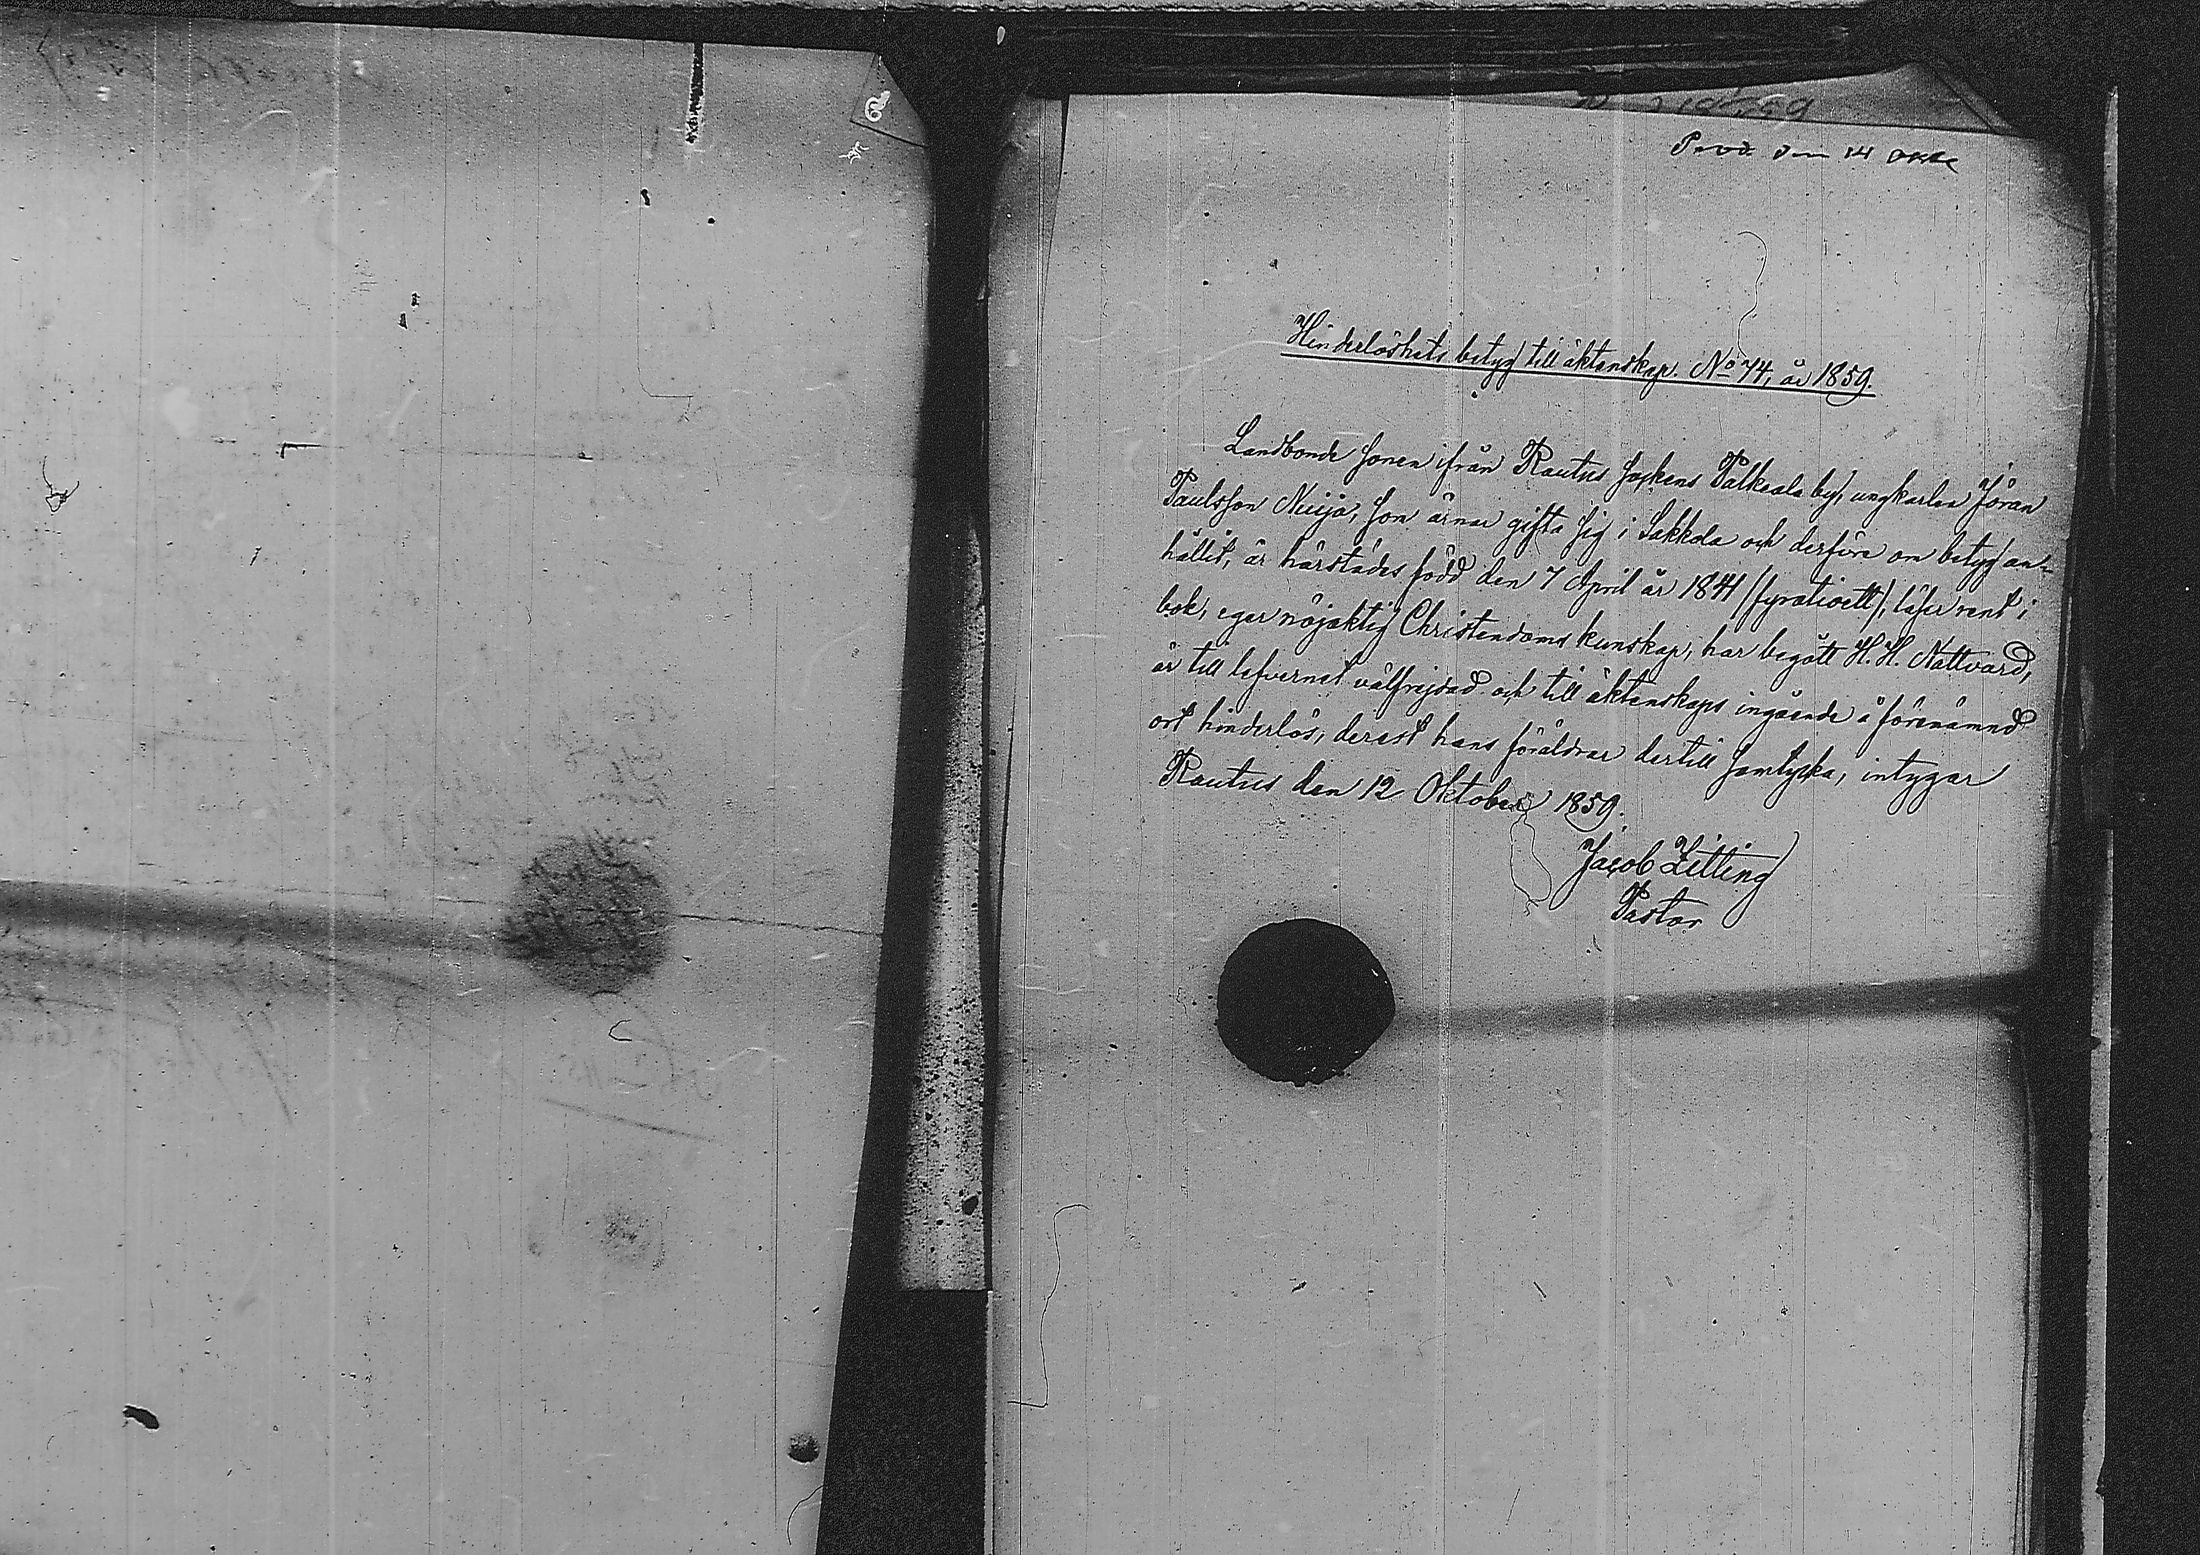 Prod. den 14 Okt
Hinderlöshets betyg till äktenskap. No 74, år 1859.
Landbonde sonen ifrån Rautus Sockens Palkeala by, ungkarlen Jöran
Paulsson Nuija, som ärnar gifta sig i Sakkola och derföre om betyg an-
hållit, är härstädes född den 7 April år 1841 (fyratioett), läser rent i
bok, eger nöjaktig Christendoms kunskap, har begått H. H. Nattvard,
är till lefvernet välfrejdad och till äktenskaps ingående å förenämnd
ort hinderlös, derest hans föräldrar dertill samtycka, intygar
Rautus den 12 Oktober 1859.
Jacob Zitting
Pastor